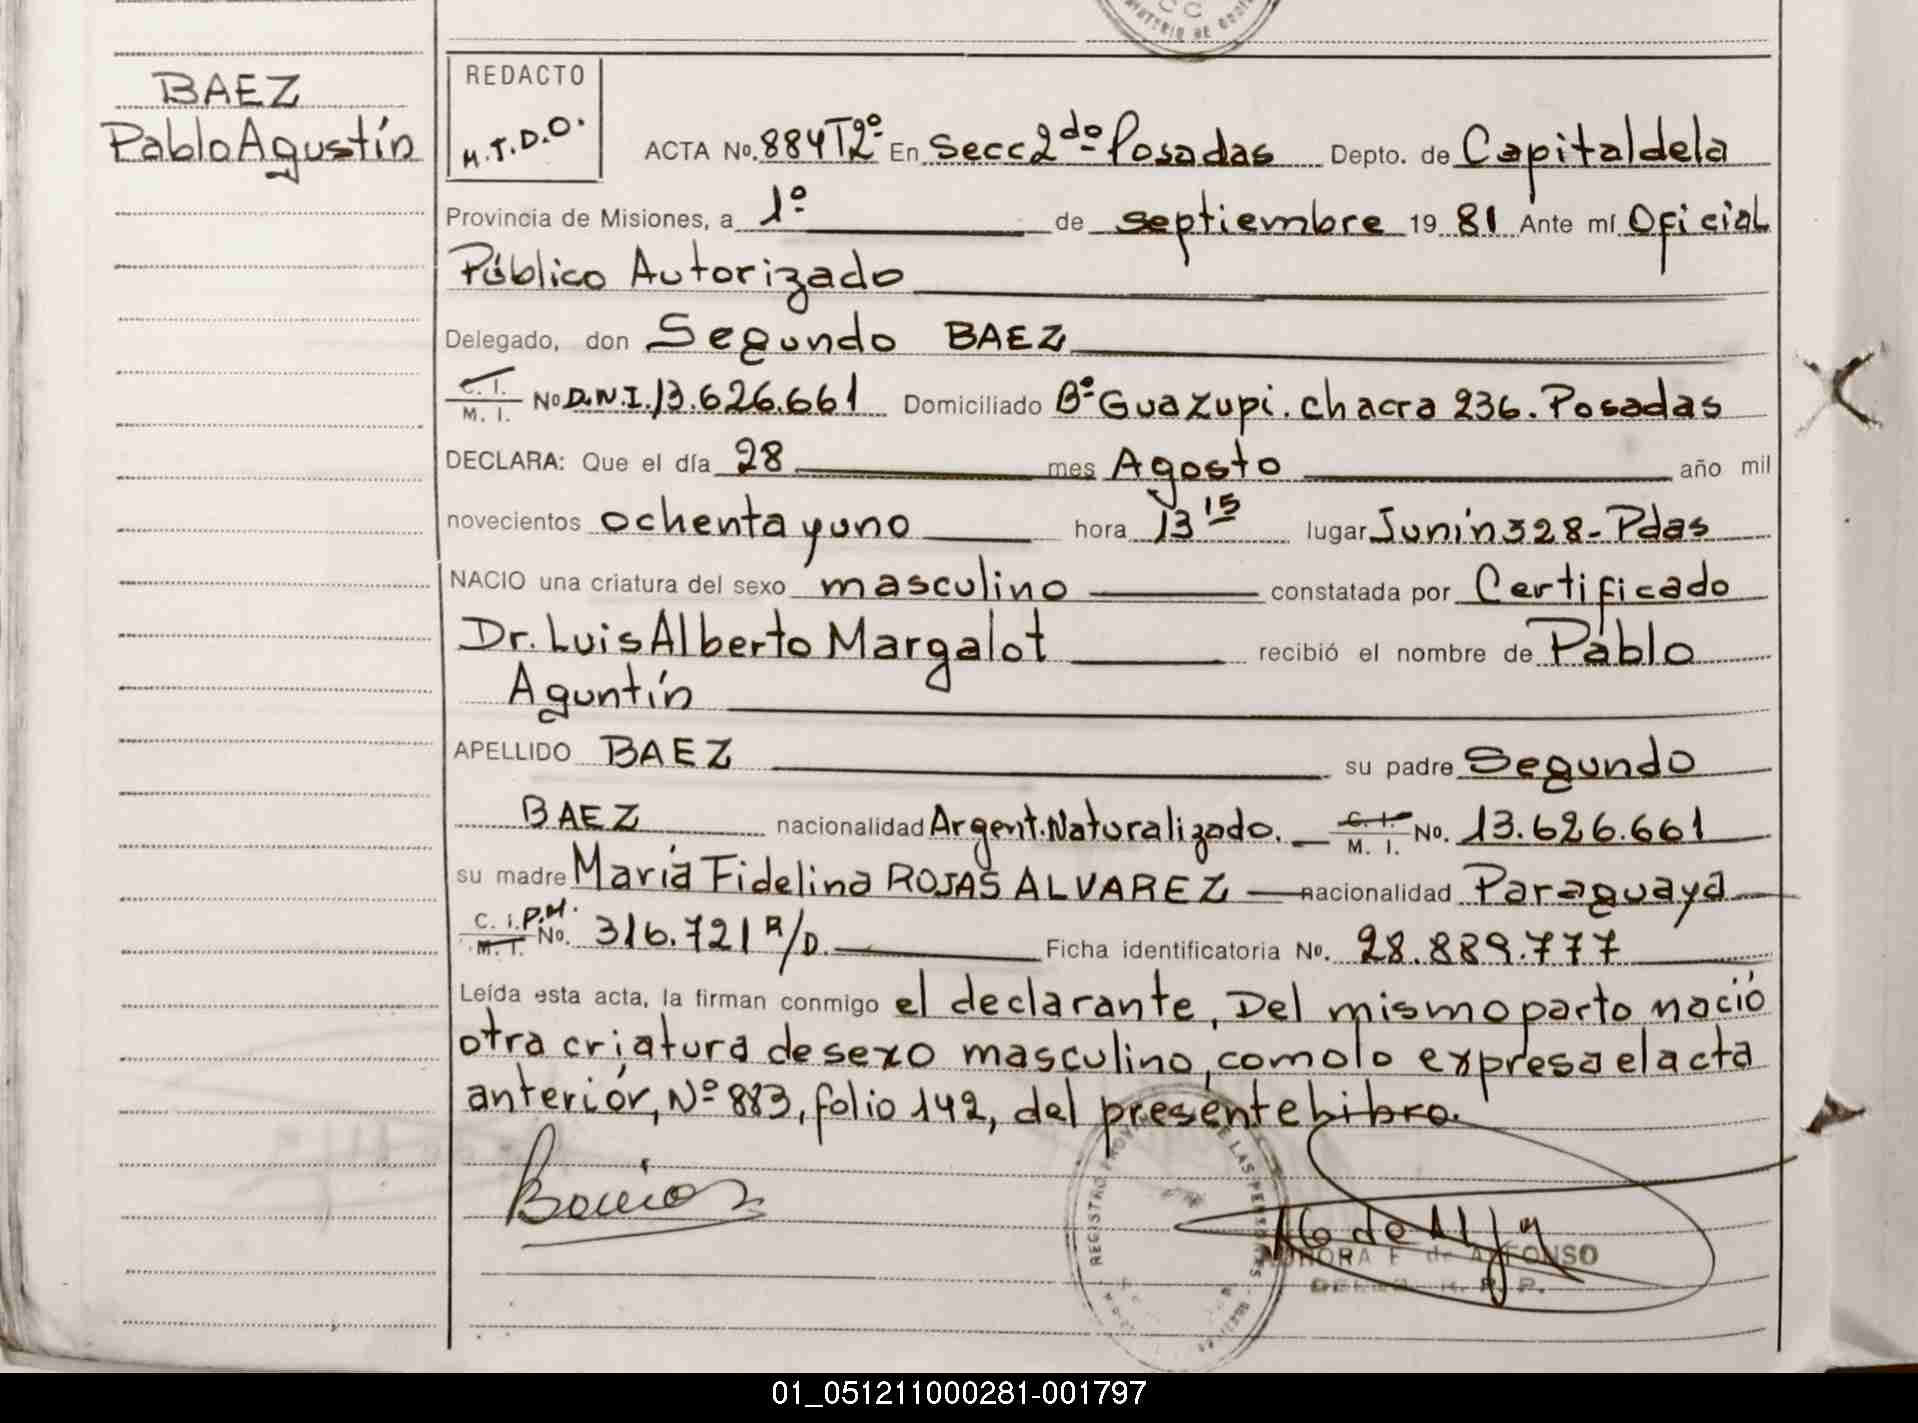 BAEZ
Pablo Agustín
REDACTO
M.T.D.O.
ACTA No. 884 T2º En Secc 2do Posadas Depto. de Capital de la
Provincia de Misiones, a 1º de septiembre 19 81 Ante mí Oficial
Público Autorizado
Delegado, don Segundo BAEZ
C. I.
M. I. No D.N.I. 13.626.661 Domiciliado Bº Guazupi. chacra 236. Posadas
DECLARA: Que el día 28 mes Agosto año mil
novecientos ochenta y uno hora 13 15 lugar Junín 328 - Pdas
NACIO una criatura del sexo masculino constatada por Certificado
Dr. Luis Alberto Margalot recibió el nombre de Pablo
Aguntín
APELLIDO BAEZ su padre Segundo
BAEZ nacionalidad Argent. Naturalizado. C. I. M. I. No. 13.626.661
su madre María Fidelina ROJAS ALVAREZ nacionalidad Paraguaya
C. I. P.M. M. I. No. 316.721 R/D. Ficha identificatoria No. 28.889.777
Leída esta acta, la firman conmigo el declarante, Del mismo parto nació
otra criatura de sexo masculino, como lo expresa el acta
anterior, Nº 883, folio 142, del presente Libro.
REGISTRO PROVIN DE LAS PERSONAS
AURORA F de ALFONSO
R. P.
01_051211000281-001797